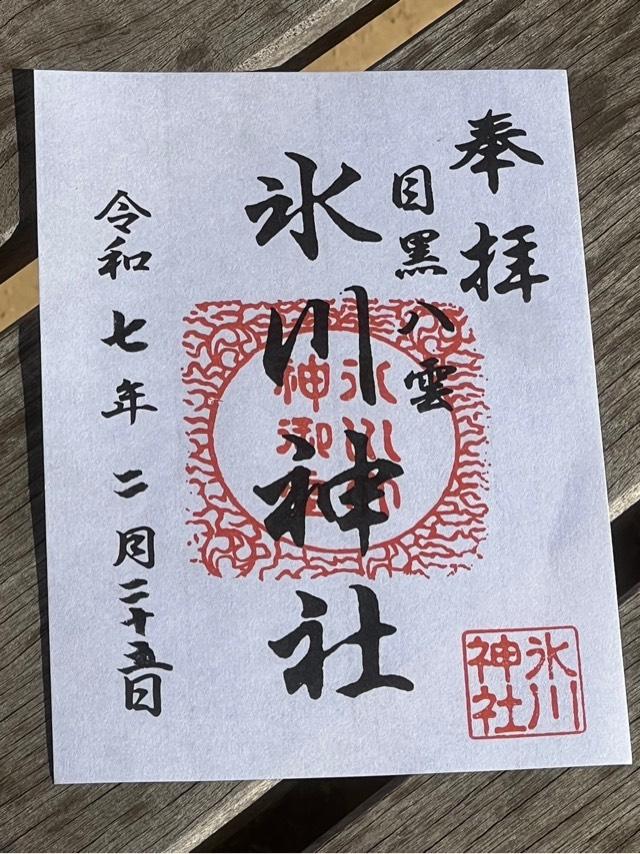 奉拝
目黒八雲
氷川神社
令和七年二月二十五日
氷川
神社